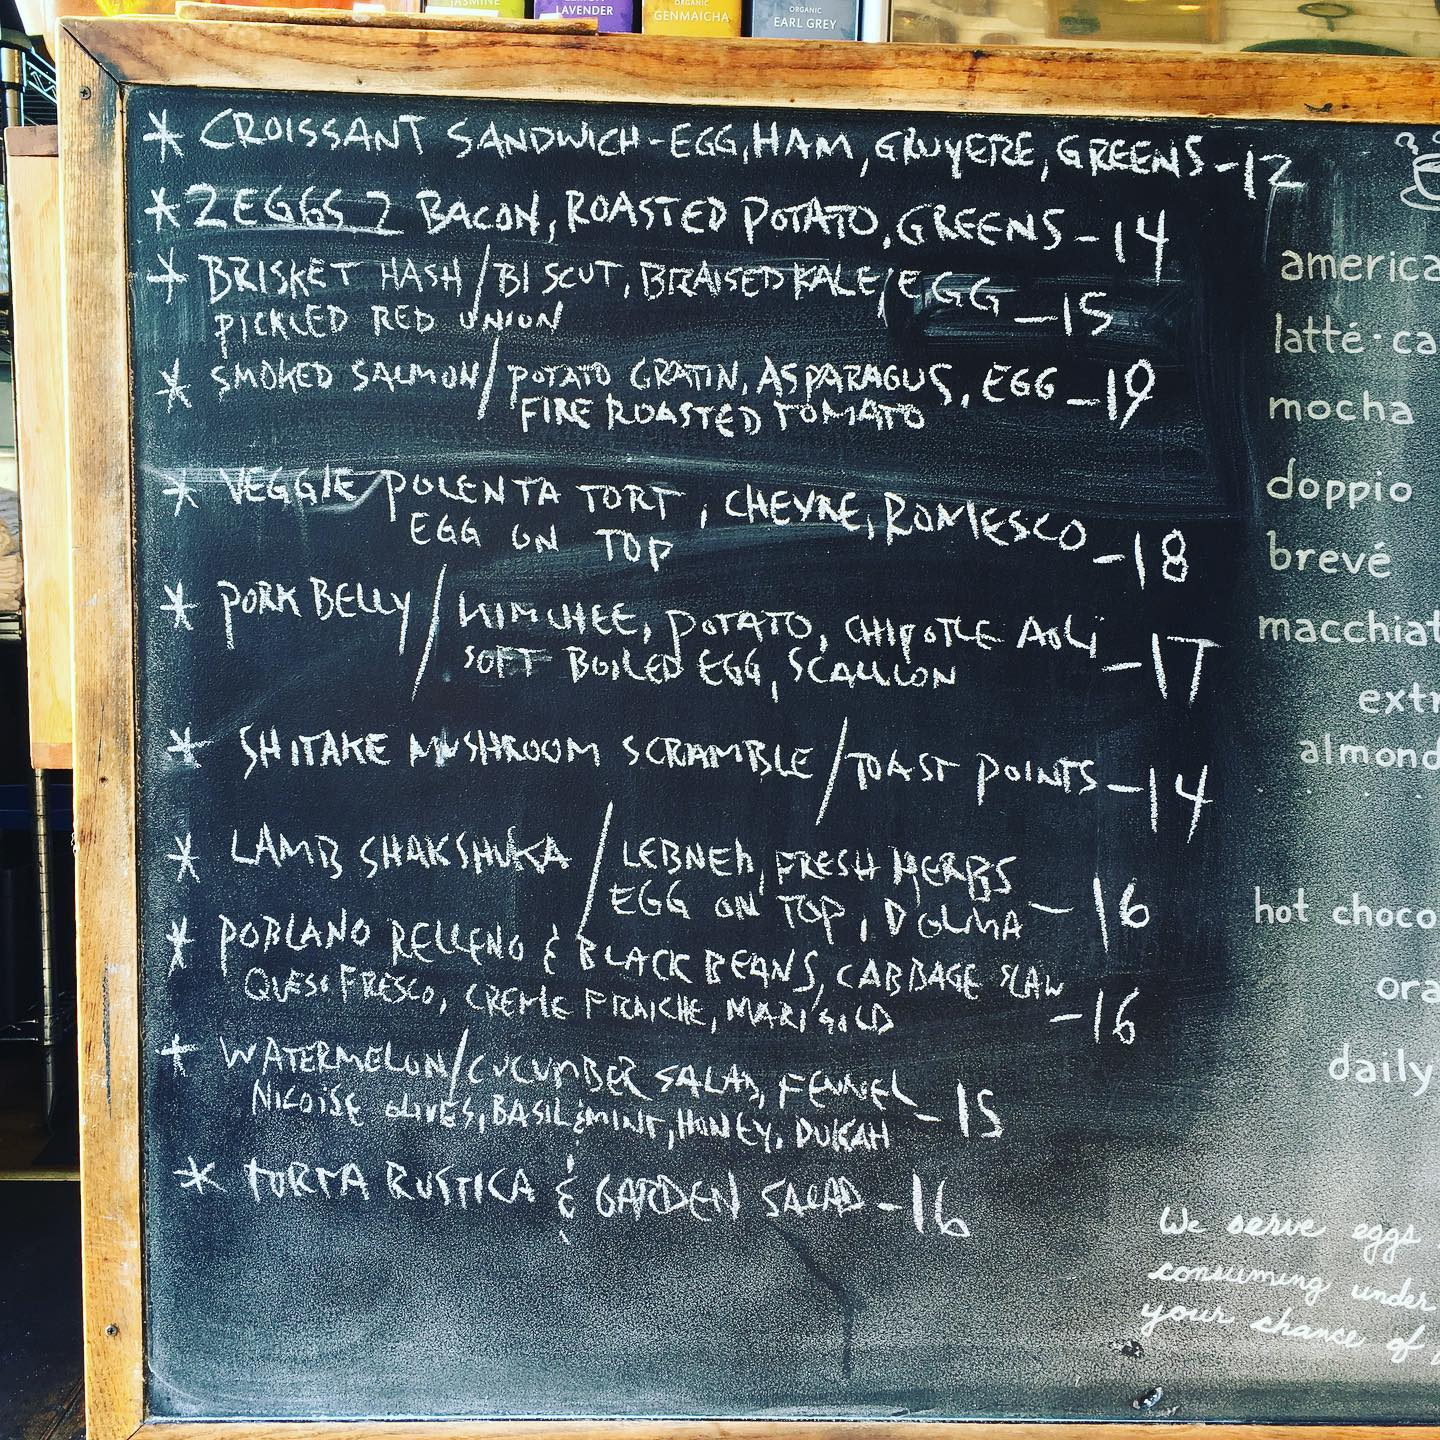 JASMINE
LAVENDER
ORGANIC
GENMAICHA
ORGANIC
EARL GREY
* CROISSANT SANDWICH-EGG, HAM, GRUYERE, GREENS-12
* 2 EGGS 2 BACON, ROASTED POTATO, GREENS-14
* BRISKET HASH/BISCUT, BRAISED KALE/EGG-15
PICKLED RED UNION
* SMOKED SALMON/POTATO GRATIN, ASPARAGUS, EGG-19
FIRE ROASTED TOMATO
* VEGGIE POLENTA TORT, CHEVRE, ROMESCO-18
EGG ON TOP
* PORK BELLY/KIMCHEE, POTATO, CHIPOTLE AOLI-17
SOFT BOILED EGG, SCALLION
* SHITAKE MUSHROOM SCRAMBLE/TOAST POINTS-14
* LAMB SHAKSHUKA/LEBNEH, FRESH HERBS
EGG ON TOP, DOLMA-16
* POBLANO RELLENO & BLACK BEANS, CABBAGE SLAW
QUESO FRESCO, CREME FRAICHE, MARIGOLD-16
* WATERMELON/CUCUMBER SALAD, FENNEL-15
NICOISE OLIVES, BASIL & MINT, HONEY, DUKAH
* TORTA RUSTICA & GARDEN SALAD-16
america
latté·ca
mocha
doppio
brevé
macchiat
extr
almond
hot choco
ora
daily
We serve eggs
consuming under
your chance of